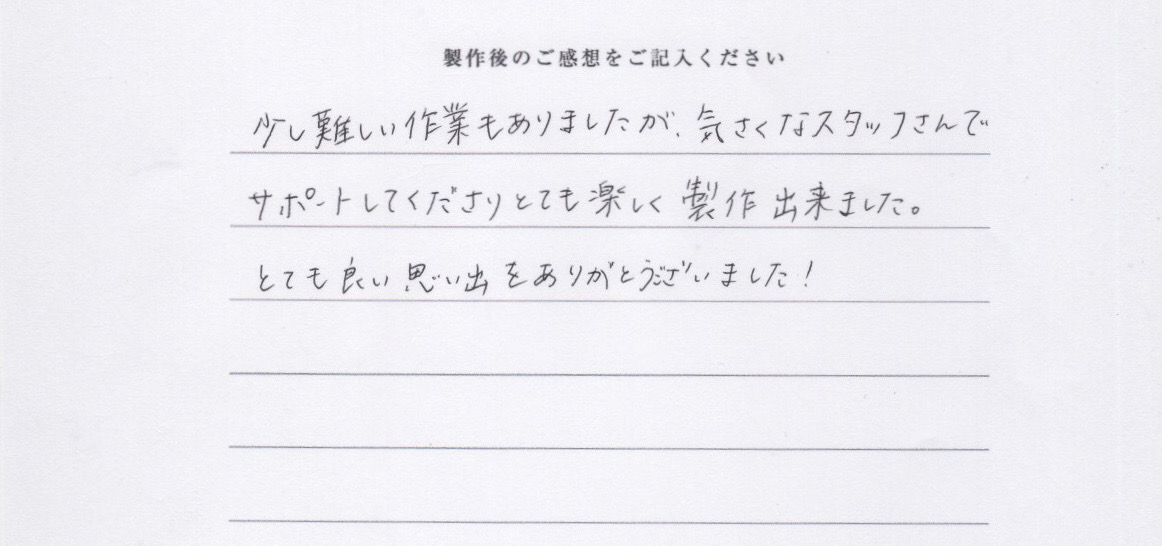 製作後のご感想をご記入ください
少し難しい作業もありましたが、気さくなスタッフさんで
サポートしてくださりとても楽しく製作出来ました。
とても良い思い出をありがとうございました！